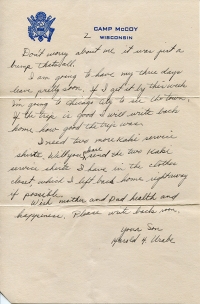 CAMP McCOY
WISCONSIN
2
Don't worry about me it was just a
bump thats all.
I am going to have my three days
leave pretty soon, if I get it by this week
im going to chicago city to see the town,
if the trip is good I will write back
home how good the trip was.
I need two more Kaki service
shirts. Will you please send the two Kaki
service shirts I have in the clothes
closet, which I left back home, right away
if possible.
Wish mother and Dad health and
happyness. Please write back soon.
Your Son
Harold H.